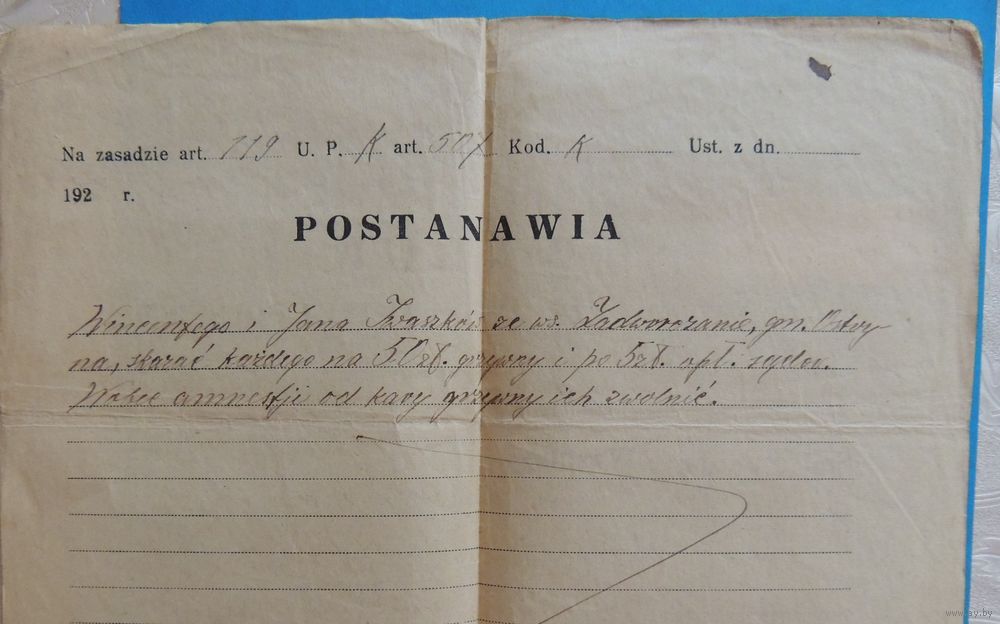 Na zasadzie art. 119 U. P. K art. 507 Kod. K Ust. z dn.
192 r.
POSTANAWIA
Wincentego i Jana Iwaszków ze ws. Zadworzanie, gm. Ostry
na, skazać każdego na 50 zł. grzywny i po 5 zł. opł. sądow.
Wobec amnestji od kary grzywny ich zwolnić.
www.ay.by